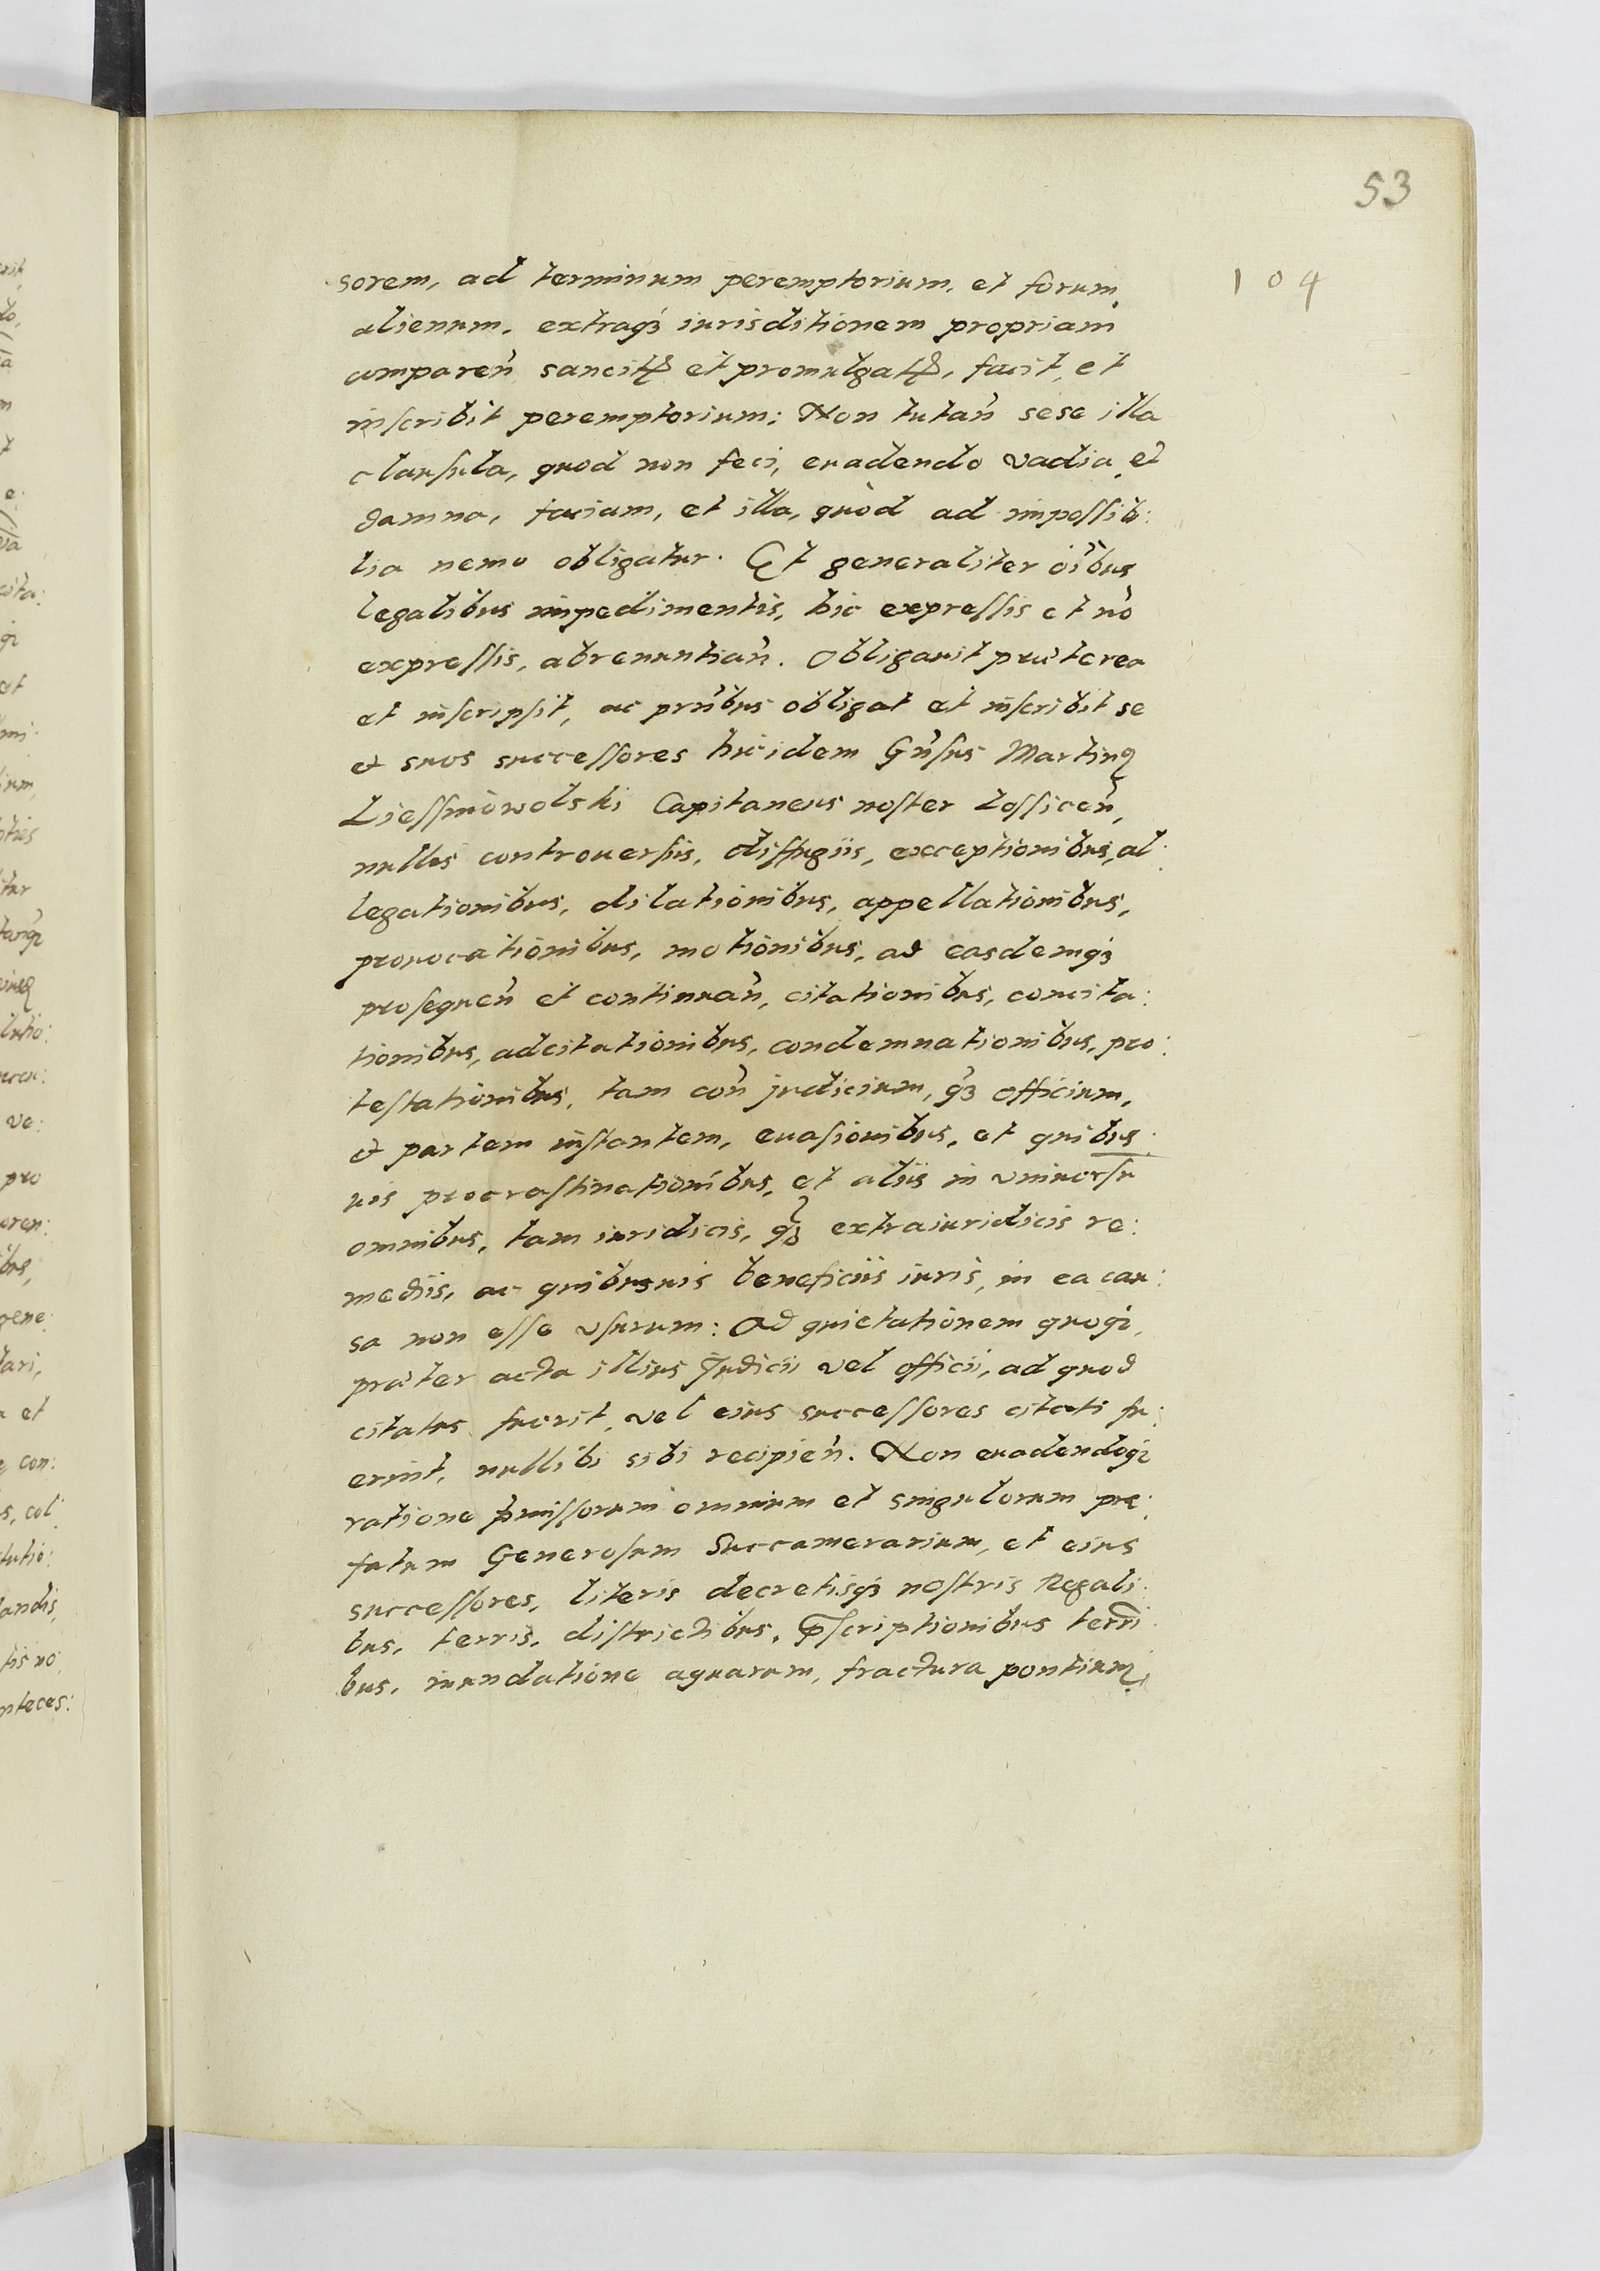 53
104
sorem, ad terminum peremptorium, et forum
alienum, extraq3 iurisditionem propriam
comparen̄ sancit et promulgat, facit, et
inscribit peremptorium: Non tutan̄ sese illa
clausula, quod non feci, euadendo vadia et
damna, faciam, et illa, quòd ad impossib:
lia nemo obligatur. Et generaliter oībus
legalibus impedimentis, hic expressis et nō
expressis, abrenuntian̄. Obligauit præterea
et inscripsit, ac prn̄bus obligat et inscribit se
et suos successores hic idem Gn̄sus Martinꝰ
Liessniowolski Capitaneus noster Lossicen̄,
nullis controuersiis, diffugiis, exceptionibus, al:
legationibus, dilationibus, appellationibus,
prouocationibus, motionibus, ad easdemq3
prosequen̄ et continuan̄, citationibus, concita:
tionibus, adcitationibus, condemnationibus, pro:
testationibus, tam con̄ judicium, q̄3 officium,
et partem instantem, euasionibus, et quibus:
uis procrastinationibus, et aliis in vniuersu
omnibus, tam iuridicis, q̄3 extraiuridicis re:
mediis, ac quibusuis beneficiis iuris, in ea cau:
sa non esse vsurum: Ad quietationem quoq3,
præter acta illius Judicii vel officii, ad quod
citatus fuerit, vel eius successores citati fu:
erint, nullibi sibi recipien̄. Non euadendoq3
ratione p̄missorum omnium et singulorum præ:
fatum Generosum Succamerarium, et eius
successores, literis decretisq3 nostris Regali:
bus, terris, districtibus, p̄scriptionibus terri:
bus, inundatione aquarum, fractura pontium,